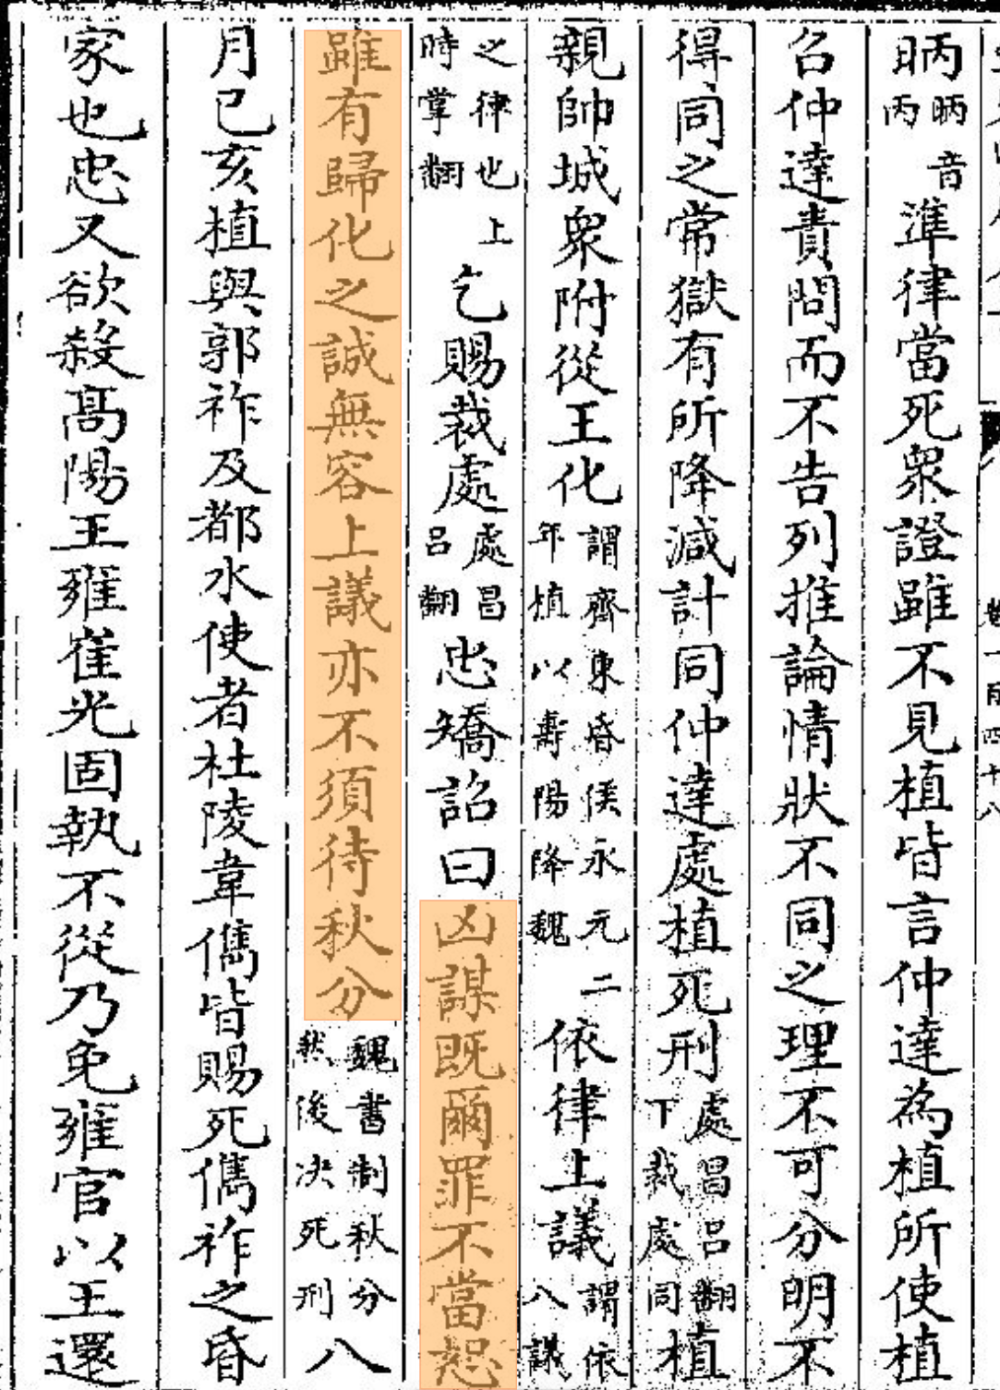 昞昞音丙準律當死衆證雖不見植皆言仲達為植所使植
召仲達責問而不告列推論情狀不同之理不可分明不
得同之常獄有所降減計同仲達處植死刑處昌呂翻下裁處同植
親帥城衆附從王化謂齊東昏侯永元二年植以壽陽降魏依律上議謂依八議
之律也上時掌翻乞賜裁處處昌呂翻忠矯詔曰凶謀既爾罪不當恕
雖有歸化之誠無容上議亦不須待秋分魏書制秋分然後决死刑八
月己亥植與郭祚及都水使者杜陵韋儁皆賜死儁祚之昏
家也忠又欲殺高陽王雍崔光固執不從乃免雍官以王還